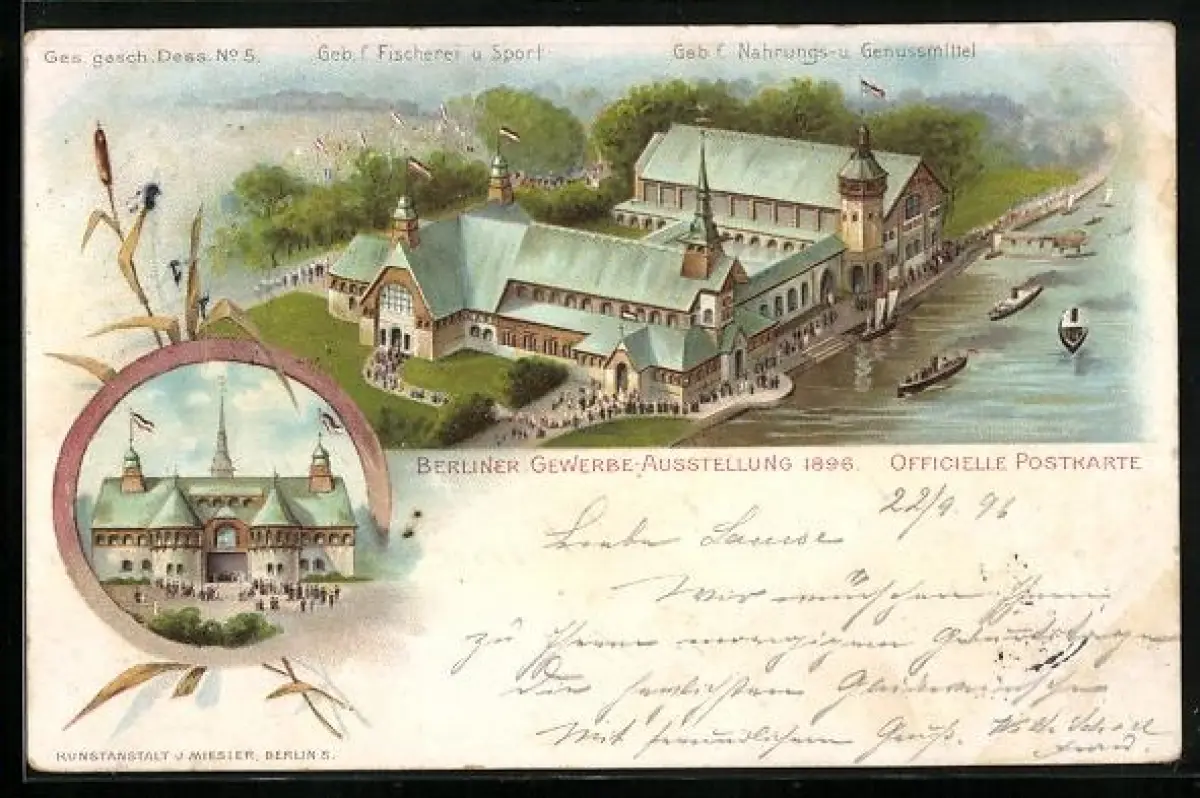 Ges. gesch. Dess. No 5. Geb. f. Fischerei u Sport Geb. f. Nahrungs- u. Genussmittel
BERLINER GEWERBE-AUSSTELLUNG 1896. OFFICIELLE POSTKARTE
22/9. 96
Wir wünschen Ihnen
zu Ihrem morgigen Geburtstage
Die herzlichsten Glückwünsche
Mit freundlichem Gruß.
Frau.
KUNSTANSTALT J MIESLER, BERLIN S.